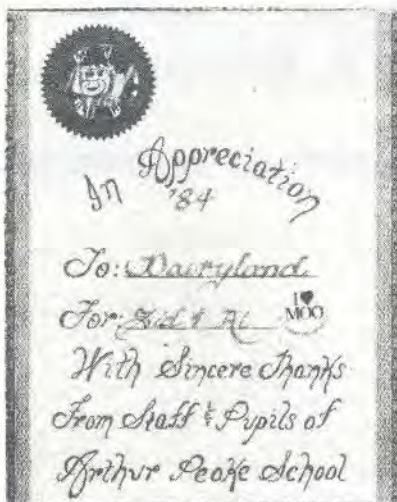 In Appreciation
'84
To: Dairyland
For: Sid & Al
I ♥
MOO
With Sincere Thanks
From Staff & Pupils of
Arthur Peake School